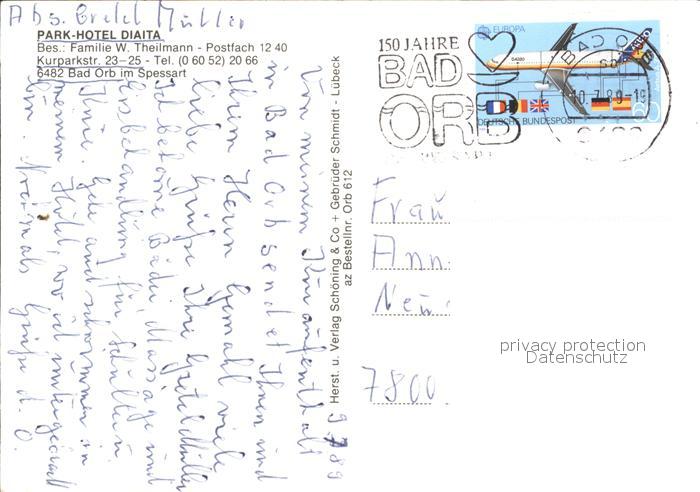 Abs. Gretel Müller
PARK-HOTEL DIAITA
Bes.: Familie W. Theilmann - Postfach 12 40
Kurparkstr. 23-25 - Tel. (0 60 52) 20 66
6482 Bad Orb im Spessart
Von meinem Kuraufenthalt
in Bad Orb sendet Ihnen und
Ihrem Herrn Gemahl viele
liebe Grüße Ihre Gretel Müller
Ich bekomme Bäder, Massage und
für Schultern
Knie. Gehe auch schwimmen in
meinem Hotel, wo ich untergebracht
bin. Nochmals Grüße d. O.
9.7.89
Herst. u. Verlag Schöning & Co + Gebrüder Schmidt - Lübeck
az Bestellnr. Orb 612
150 JAHRE
BAD
ORB
EUROPA
DEUTSCHE BUNDESPOST
80
BAD O
10.7.89-19
Frau
Ann
Neu
7800
privacy protection
Datenschutz